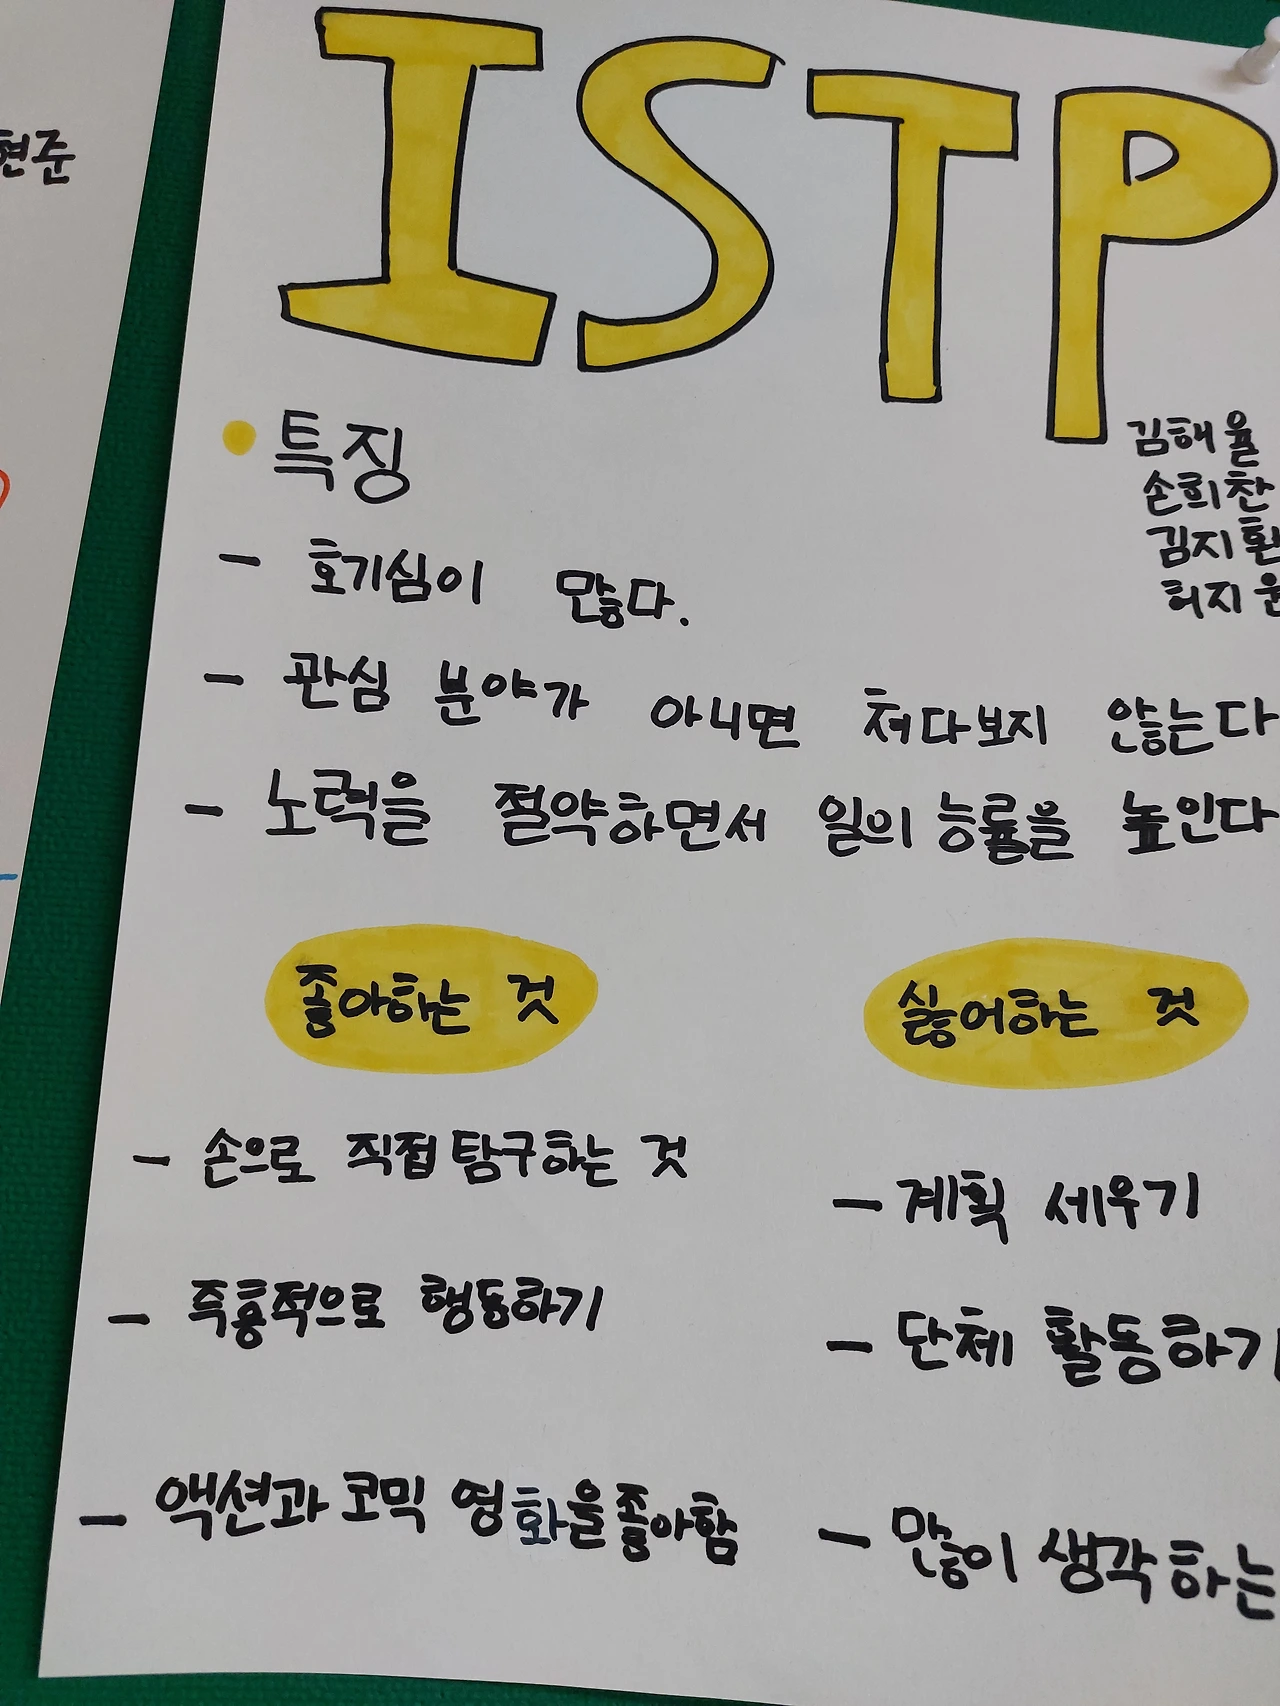 현준
ISTP
김해율
손희찬
김지환
허지윤
• 특징
- 호기심이 많다.
- 관심 분야가 아니면 쳐다보지 않는다
- 노력을 절약하면서 일의 능률을 높인다
좋아하는 것
- 손으로 직접 탐구하는 것
- 즉흥적으로 행동하기
- 액션과 코믹 영화을 좋아함
싫어하는 것
- 계획 세우기
- 단체 활동하기
- 많이 생각하는